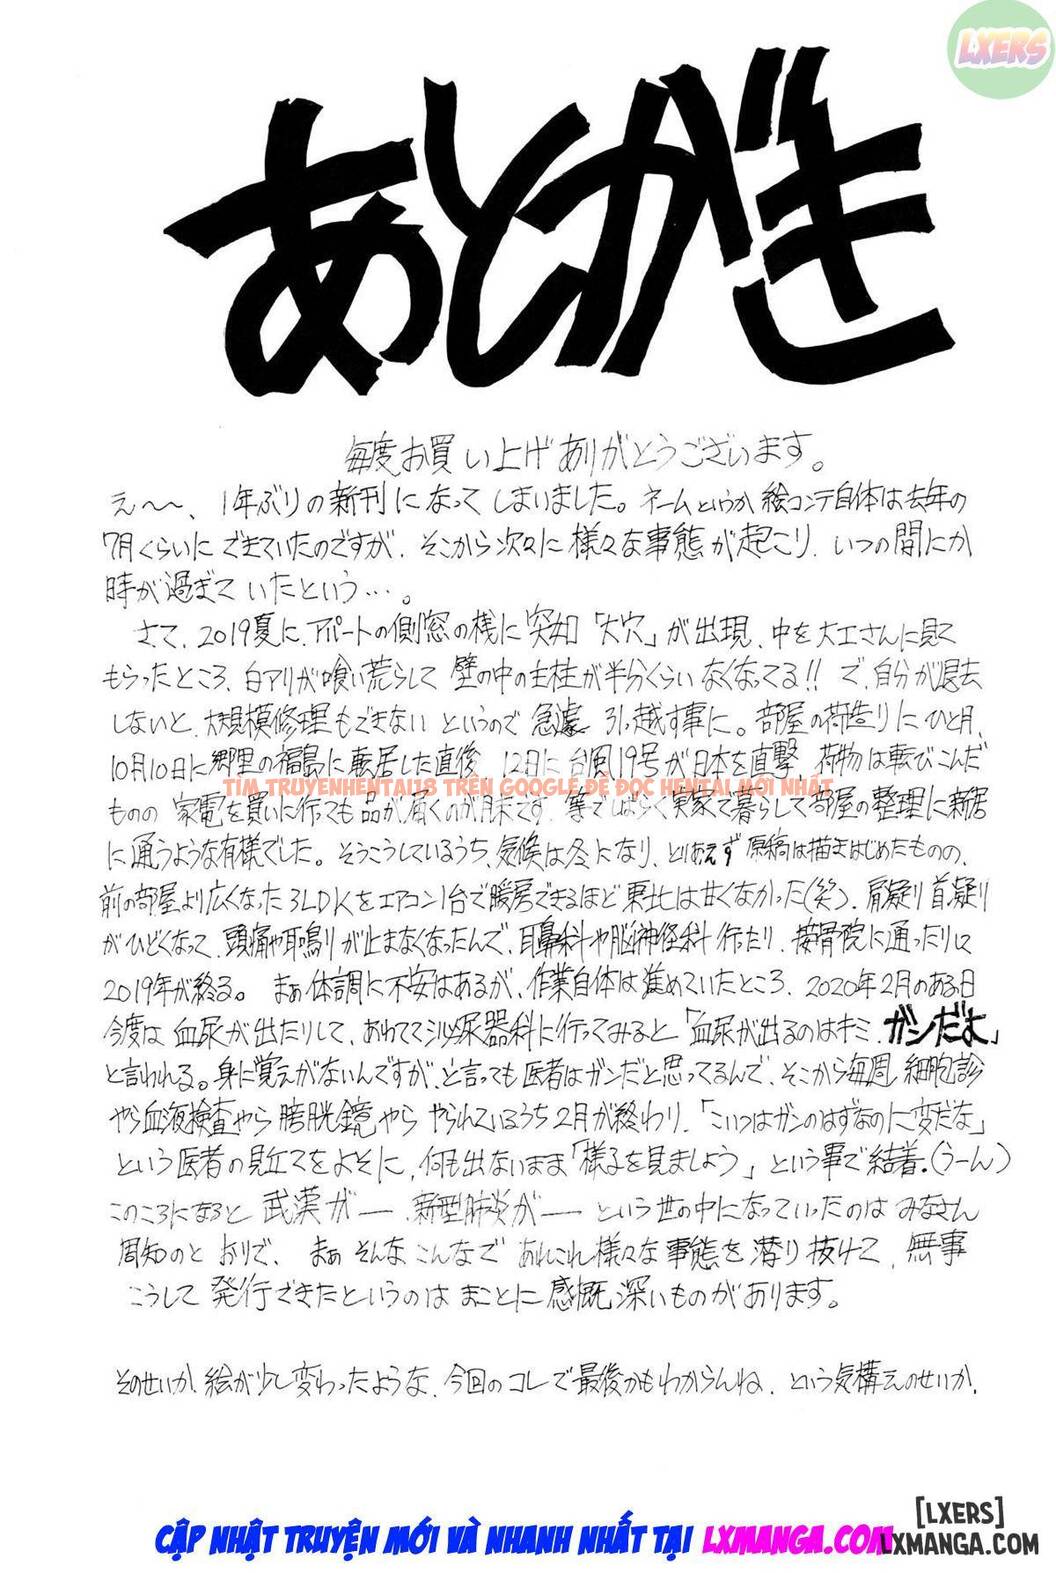 LXERS
あとがき
毎度お買い上げありがとうございます。
え〜〜、1年ぶりの新刊になってしまいました。ネームというか絵コンテ自体は去年の
7月くらいにできていたのですが、そこから次々に様々な事態が起こり、いつの間にか
時が過ぎていたという…。
さて、2019夏に、アパートの側窓の桟に突如「大穴」が出現、中を大工さんに見て
もらったところ、白アリが喰い荒らして壁の中の主柱が半分くらいなくなってる!!で、自分が退去
しないと、大規模修理もできないというので急遽引っ越す事に。部屋の荷造りにひと月、
10月10日に郷里の福島に転居した直後、12日に台風19号が日本を直撃、荷物は転びこんだ
TÌM TRUYENHENTAI18 TRÊN GOOGLE ĐỂ ĐỌC HENTAI MỚI NHẤT
ものの家電を買いに行っても品が届くのが月末です、等でしばらく実家で暮らして部屋の整理に新居
に通うような有様でした。そうこうしているうち、気候は冬になり、とりあえず原稿は描きはじめたものの、
前の部屋より広くなった3LDKをエアコン1台で暖房できるほど東北は甘くなかった(笑)。肩凝り首凝り
がひどくなって、頭痛や耳鳴りが止まなくなったんで、耳鼻科や脳神経科行ったり、接骨院に通ったりして
2019年が終る。まぁ体調に不安はあるが、作業自体は進めていたところ、2020年2月のある日
今度は血尿が出たりして、あわてて泌尿器科に行ってみると「血尿が出るのはキミ、ガンだよ」
と言われる。身に覚えがないんですが、と言っても医者はガンだと思ってるんで、そこから毎週細胞診
やら血液検査やら膀胱鏡やらやられているうち2月が終わり、「こいつはガンのはずなのに変だな」
という医者の見立てをよそに、何も出ないまま「様子を見ましょう」という事で結着。(うーん)
このころになると武漢が――、新型肺炎が――という世の中になっていったのはみなさん
周知のとおりで、まぁそんなこんなであれこれ様々な事態を潜り抜けて、無事
こうして発行できたというのはまことに感慨深いものがあります。
そのせいか、絵が少し変わったような、今回のコレで最後かもわからんね、という気構えのせいか、
[LXERS]
CẬP NHẬT TRUYỆN MỚI VÀ NHANH NHẤT TẠI LXMANGA.COM
LXMANGA.COM